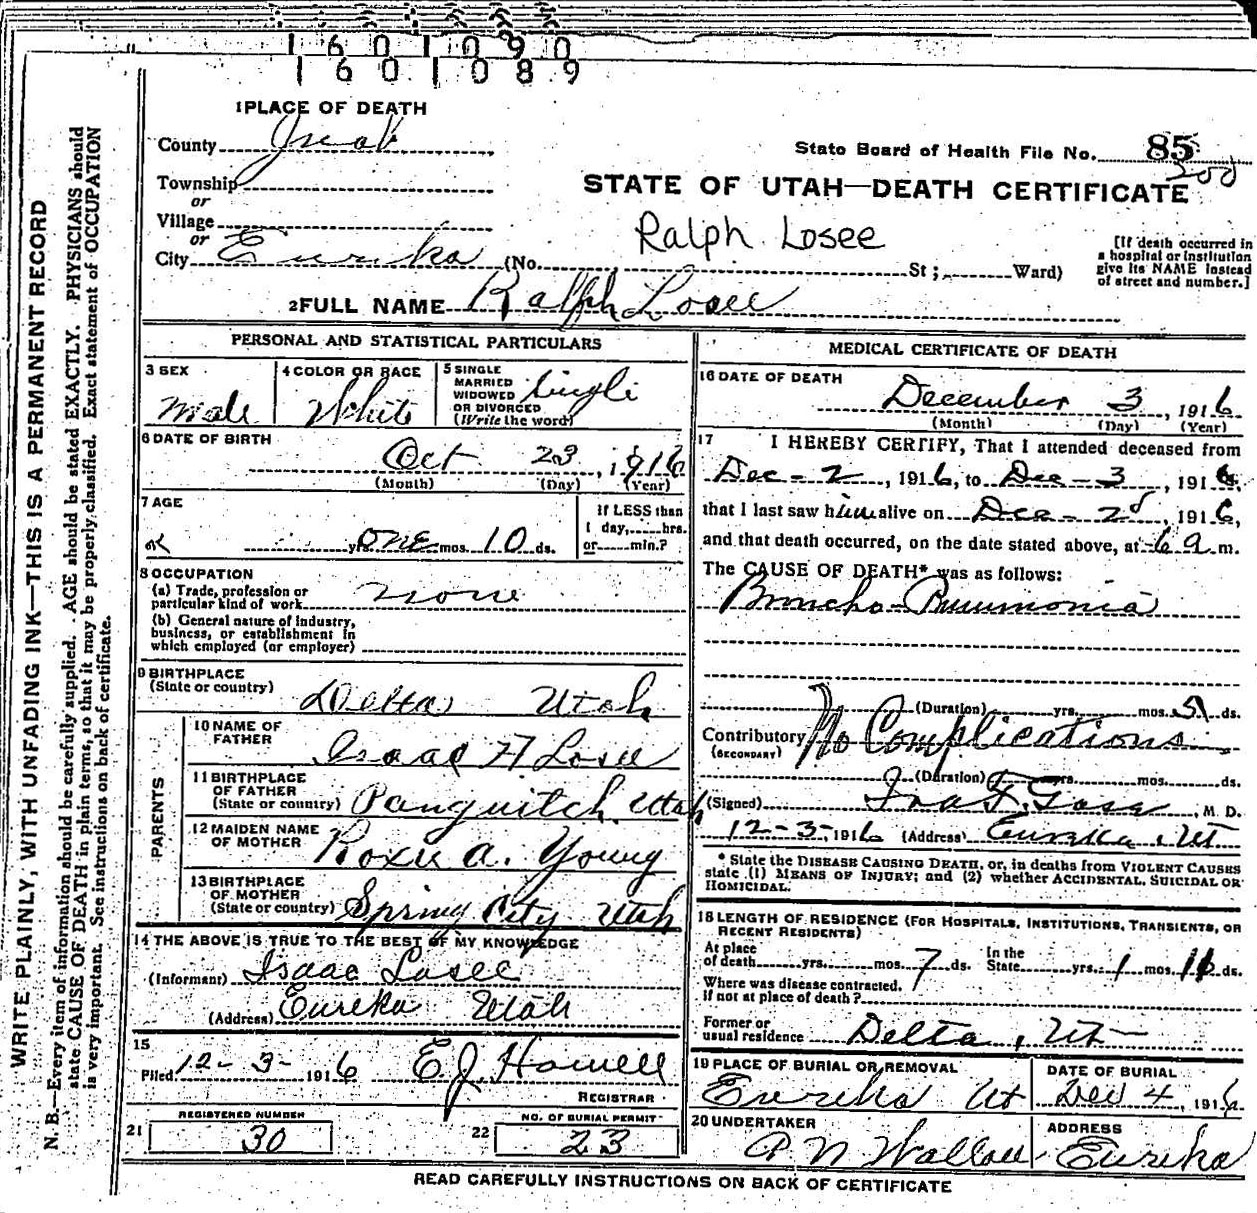 1601090
1601089
1 PLACE OF DEATH
County Juab
State Board of Health File No. 85
200
Township
or
STATE OF UTAH—DEATH CERTIFICATE
Village
or
Ralph Losee
City Eureka (No. St; Ward)
[If death occurred in a hospital or institution give its NAME instead of street and number.]
2 FULL NAME Ralph Losee
PERSONAL AND STATISTICAL PARTICULARS
3 SEX
Male
4 COLOR OR RACE
White
5 SINGLE
MARRIED
WIDOWED
OR DIVORCED
(Write the word)
Single
6 DATE OF BIRTH
Oct 23, 1916
(Month) (Day) (Year)
7 AGE
yrs. one mos. 10 ds.
If LESS than
1 day, hrs.
or min.?
8 OCCUPATION
(a) Trade, profession or
particular kind of work none
(b) General nature of industry,
business, or establishment in
which employed (or employer)
9 BIRTHPLACE
(State or country)
Delta Utah
PARENTS
10 NAME OF
FATHER
Isaac A Losee
11 BIRTHPLACE
OF FATHER
(State or country) Panguitch Utah
12 MAIDEN NAME
OF MOTHER
Roxie A. Young
13 BIRTHPLACE
OF MOTHER
(State or country) Spring City Utah
14 THE ABOVE IS TRUE TO THE BEST OF MY KNOWLEDGE
(Informant) Isaac Losee
(Address) Eureka Utah
15
Filed 12-3-1916 E J Howell
REGISTRAR
REGISTERED NUMBER
21 30
NO. OF BURIAL PERMIT
22 23
MEDICAL CERTIFICATE OF DEATH
16 DATE OF DEATH
December 3, 1916
(Month) (Day) (Year)
17 I HEREBY CERTIFY, That I attended deceased from
Dec - 2, 1916, to Dec - 3, 1916,
that I last saw him alive on Dec - 2d, 1916,
and that death occurred, on the date stated above, at 6 a m.
The CAUSE OF DEATH* was as follows:
Broncho-Pneumonia
(Duration) yrs. mos. ds.
Contributory No Complications
(SECONDARY)
(Duration) yrs. mos. ds.
(Signed) , M. D.
12-3-1916 (Address) Eureka, Ut
* State the DISEASE CAUSING DEATH, or, in deaths from VIOLENT CAUSES
state (1) MEANS OF INJURY; and (2) whether ACCIDENTAL, SUICIDAL OR
HOMICIDAL.
18 LENGTH OF RESIDENCE (FOR HOSPITALS, INSTITUTIONS, TRANSIENTS, OR
RECENT RESIDENTS)
At place
of death yrs. mos. 7 ds.
In the
State yrs. 1 mos. ds.
Where was disease contracted,
If not at place of death?
Former or
usual residence Delta, Ut
19 PLACE OF BURIAL OR REMOVAL
Eureka Ut
DATE OF BURIAL
Dec 4, 1916
20 UNDERTAKER
P N Wallace
ADDRESS
Eureka
READ CAREFULLY INSTRUCTIONS ON BACK OF CERTIFICATE
WRITE PLAINLY, WITH UNFADING INK—THIS IS A PERMANENT RECORD
N. B.—Every item of information should be carefully supplied. AGE should be stated EXACTLY. PHYSICIANS should
state CAUSE OF DEATH in plain terms, so that it may be properly classified. Exact statement of OCCUPATION
is very important. See instructions on back of certificate.